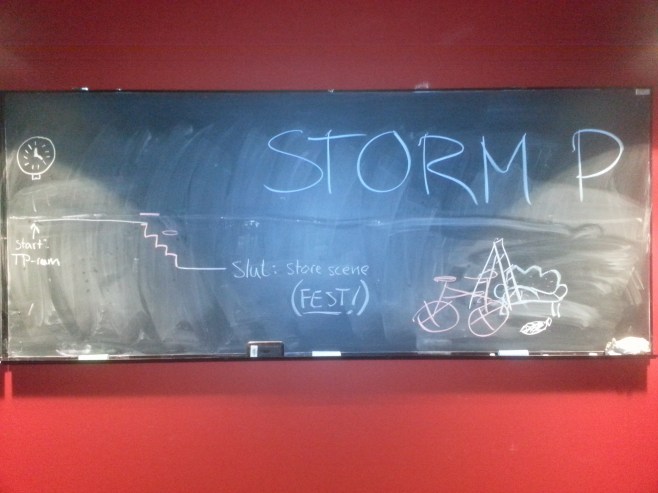 STORM P
start:
TP-rum
Slut: store scene
(FEST!)